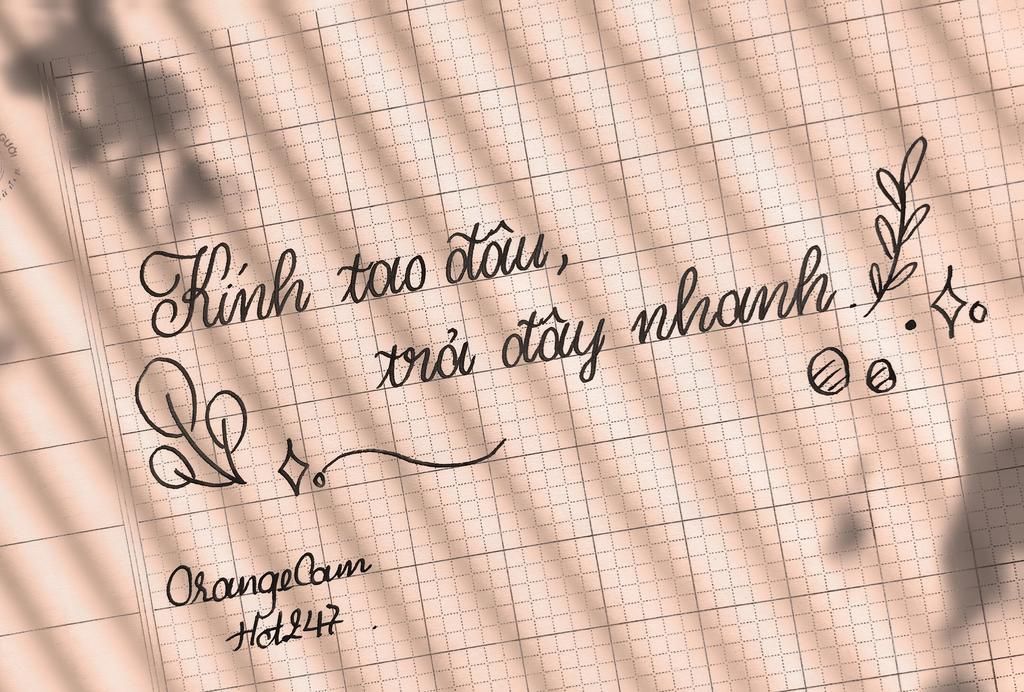 Kính tao đâu,
trả đây nhanh.
OrangeCam
Hot247.